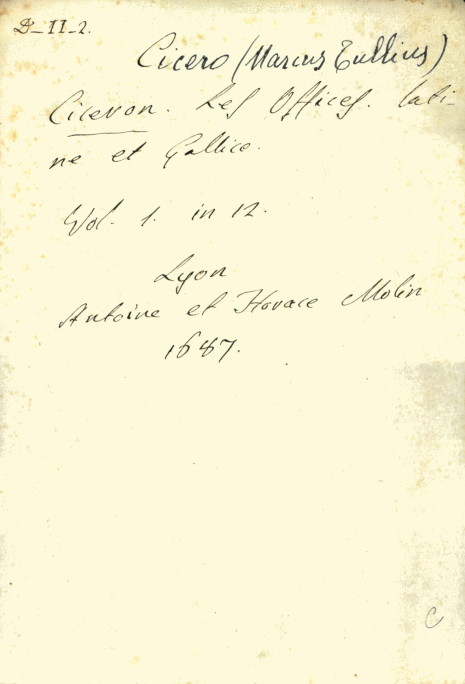 D-II-2.
Cicero (Marcus Tullius)
Ciceron. Les Offices. lati-
ne et Gallice.
Vol. 1. in 12.
Lyon
Antoine et Horace Molin
1687.
C